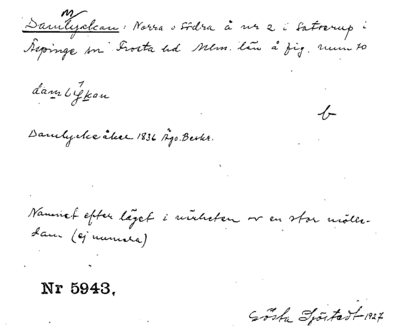 Damlyckan: Norra o Södra å nr 2 i Satserup i
Äspinge sn Frosta hd Malm. län å fig. num 10
damlykan
b
Damlycke åker 1836 Ägo. Beskr.
Namnet efter läget i närheten av en stor mölle-
dam (ej numera)
Nr 5943,
Gösta Sjöstedt 1927